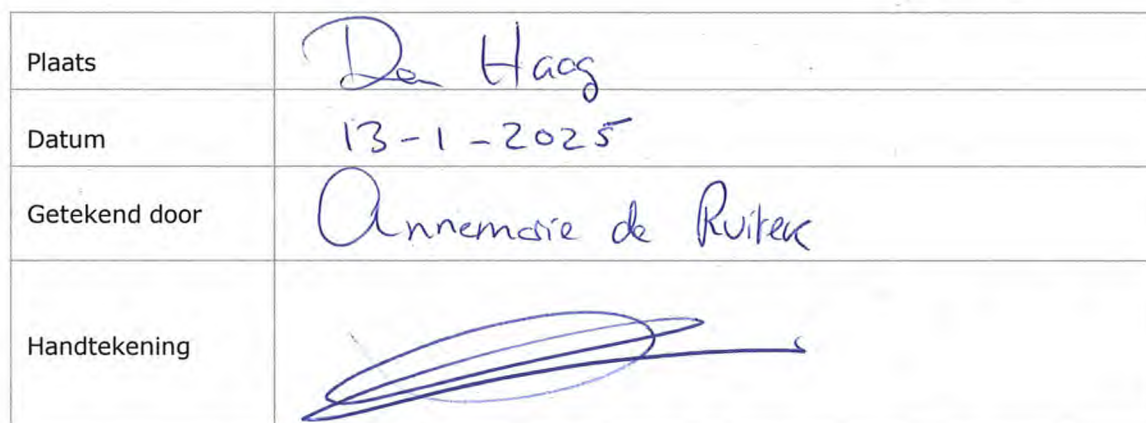 Plaats Den Haag
Datum 13-1-2025
Getekend door Annemarie de Ruiter
Handtekening